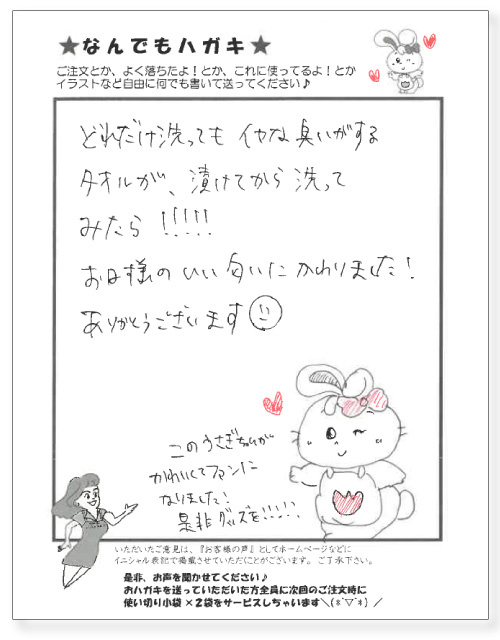 ★なんでもハガキ★
ご注文とか、よく落ちたよ！とか、これに使ってるよ！とか
イラストなど自由に何でも書いて送ってください♪
どれだけ洗っても イヤな臭いがする
タオルが、漬けてから洗って
みたら !!!!!
お日様のいい匂いにかわりました！
ありがとうございます
このうさぎちゃんが
かわいくてファンに
なりました！
是非グッズを!!!!!
いただいたご意見は、『お客様の声』としてホームページなどに
イニシャル表記で掲載させていただことがございます。ご了承下さい。
是非、お声を聞かせてください♪
おハガキを送っていただいた方全員に次回のご注文時に
使い切り小袋×2袋をサービスしちゃいます＼(*ˊ▽ˋ*)／